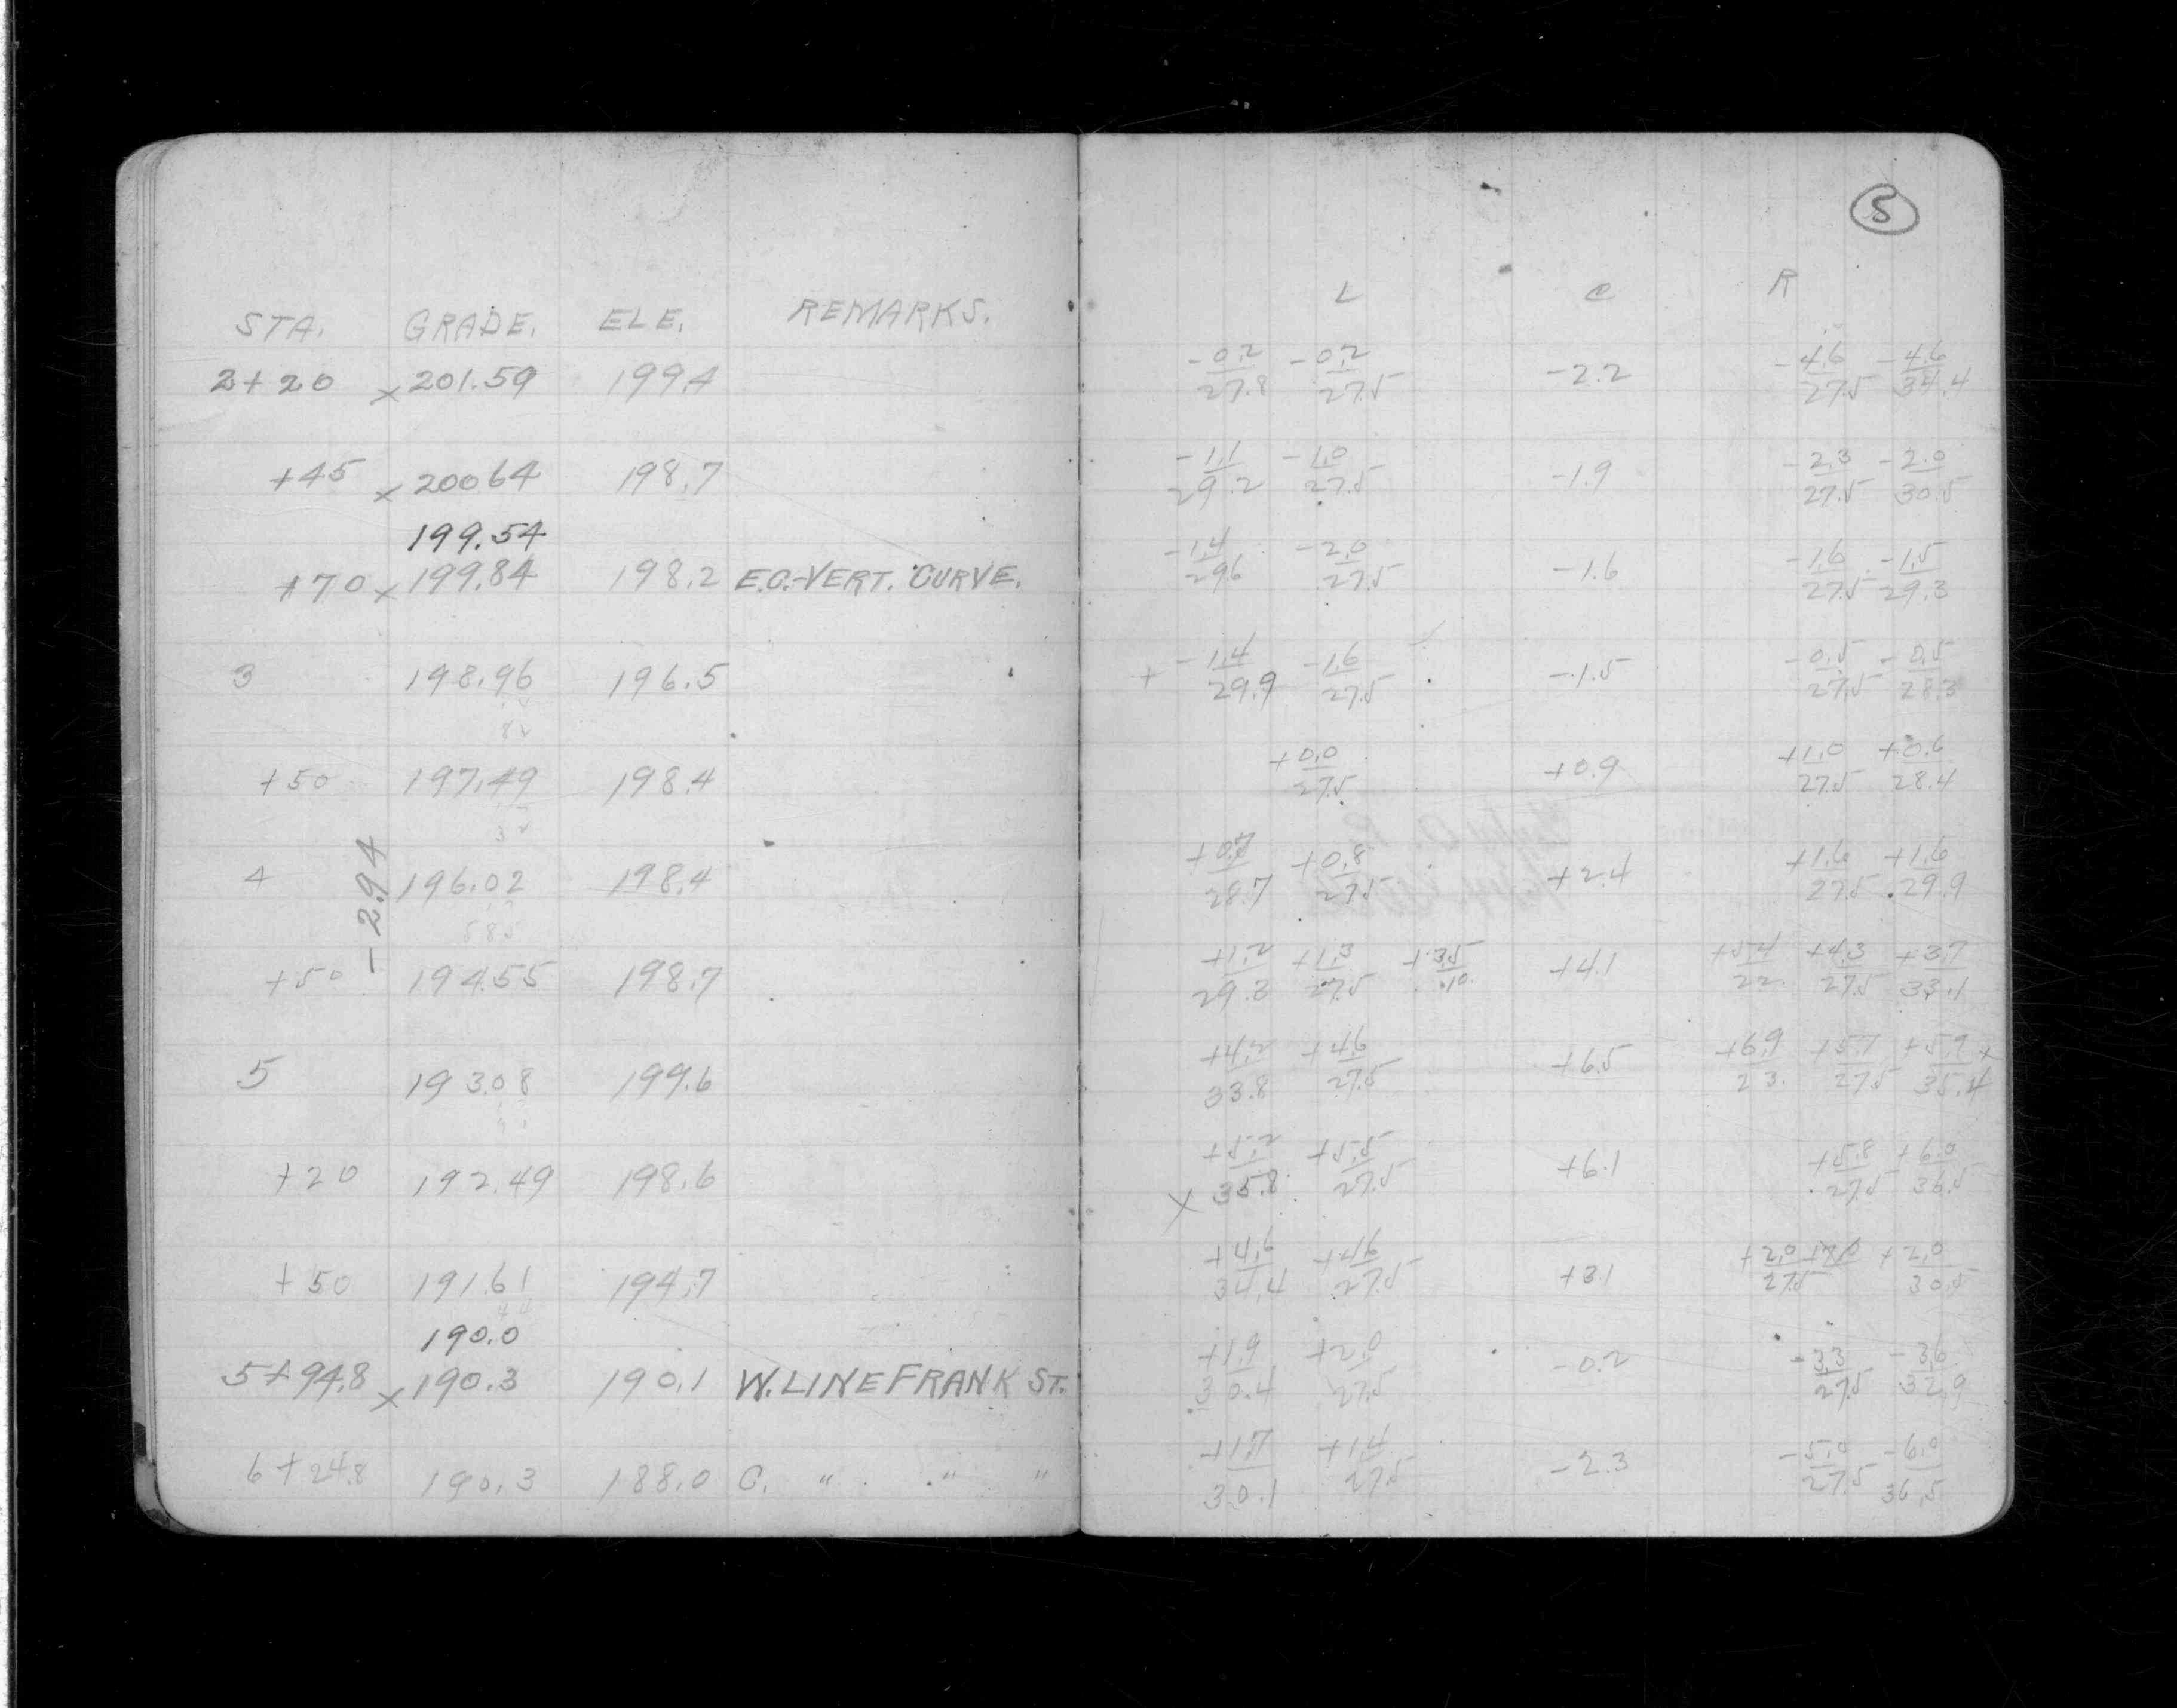 5
STA. GRADE. ELE. REMARKS.
2+20 x 201.59 199.4
+45 x 200 64 198.7
199.54
+70 x 199.84 198.2 E.C.-VERT. CURVE.
3 198.96 196.5
+50 197.49 198.4
-2.94
4 196.02 198.4
+50 194.55 198.7
5 193.08 199.6
+20 192.49 198.6
+50 191.61 194.7
190.0
5+94.8 x 190.3 190.1 W. LINE FRANK ST.
6+24.8 190.3 188.0 C. " " "
L C R
-0.2 -0.2 -2.2 -4.6 -4.6
27.8 27.5 27.5 34.4
-1.1 -1.0 -1.9 -2.3 -2.0
29.2 27.5 27.5 30.5
-1.4 -2.0 -1.6 -1.6 -1.5
29.6 27.5 27.5 29.3
+ -1.4 -1.6 -1.5 -0.5 -0.5
29.9 27.5 27.5 28.3
+0.0 +0.9 +1.0 +0.6
27.5 27.5 28.4
+0.8 +2.4 +1.6 +1.6
28.7 27.5 27.5 29.9
+1.2 +1.3 +3.5 +4.1 +5.4 +4.3 +3.7
29.3 27.5 10. 22. 27.5 33.1
+4.2 +4.6 +6.5 +6.9 +5.7 +5.9 +
33.8 27.5 23. 27.5 35.4
+5.2 +5.5 +6.1 +5.8 +6.0
x 35.8 27.5 27.5 36.5
+4.6 +4.6 +3.1 +2.0 +2.0
34.4 27.5 27.5 30.5
+1.9 +2.0 -0.2 -3.3 -3.6
30.4 27.5 27.5 32.9
+1.7 +1.4 -2.3 -5.0 -6.0
30.1 27.5 27.5 36.5